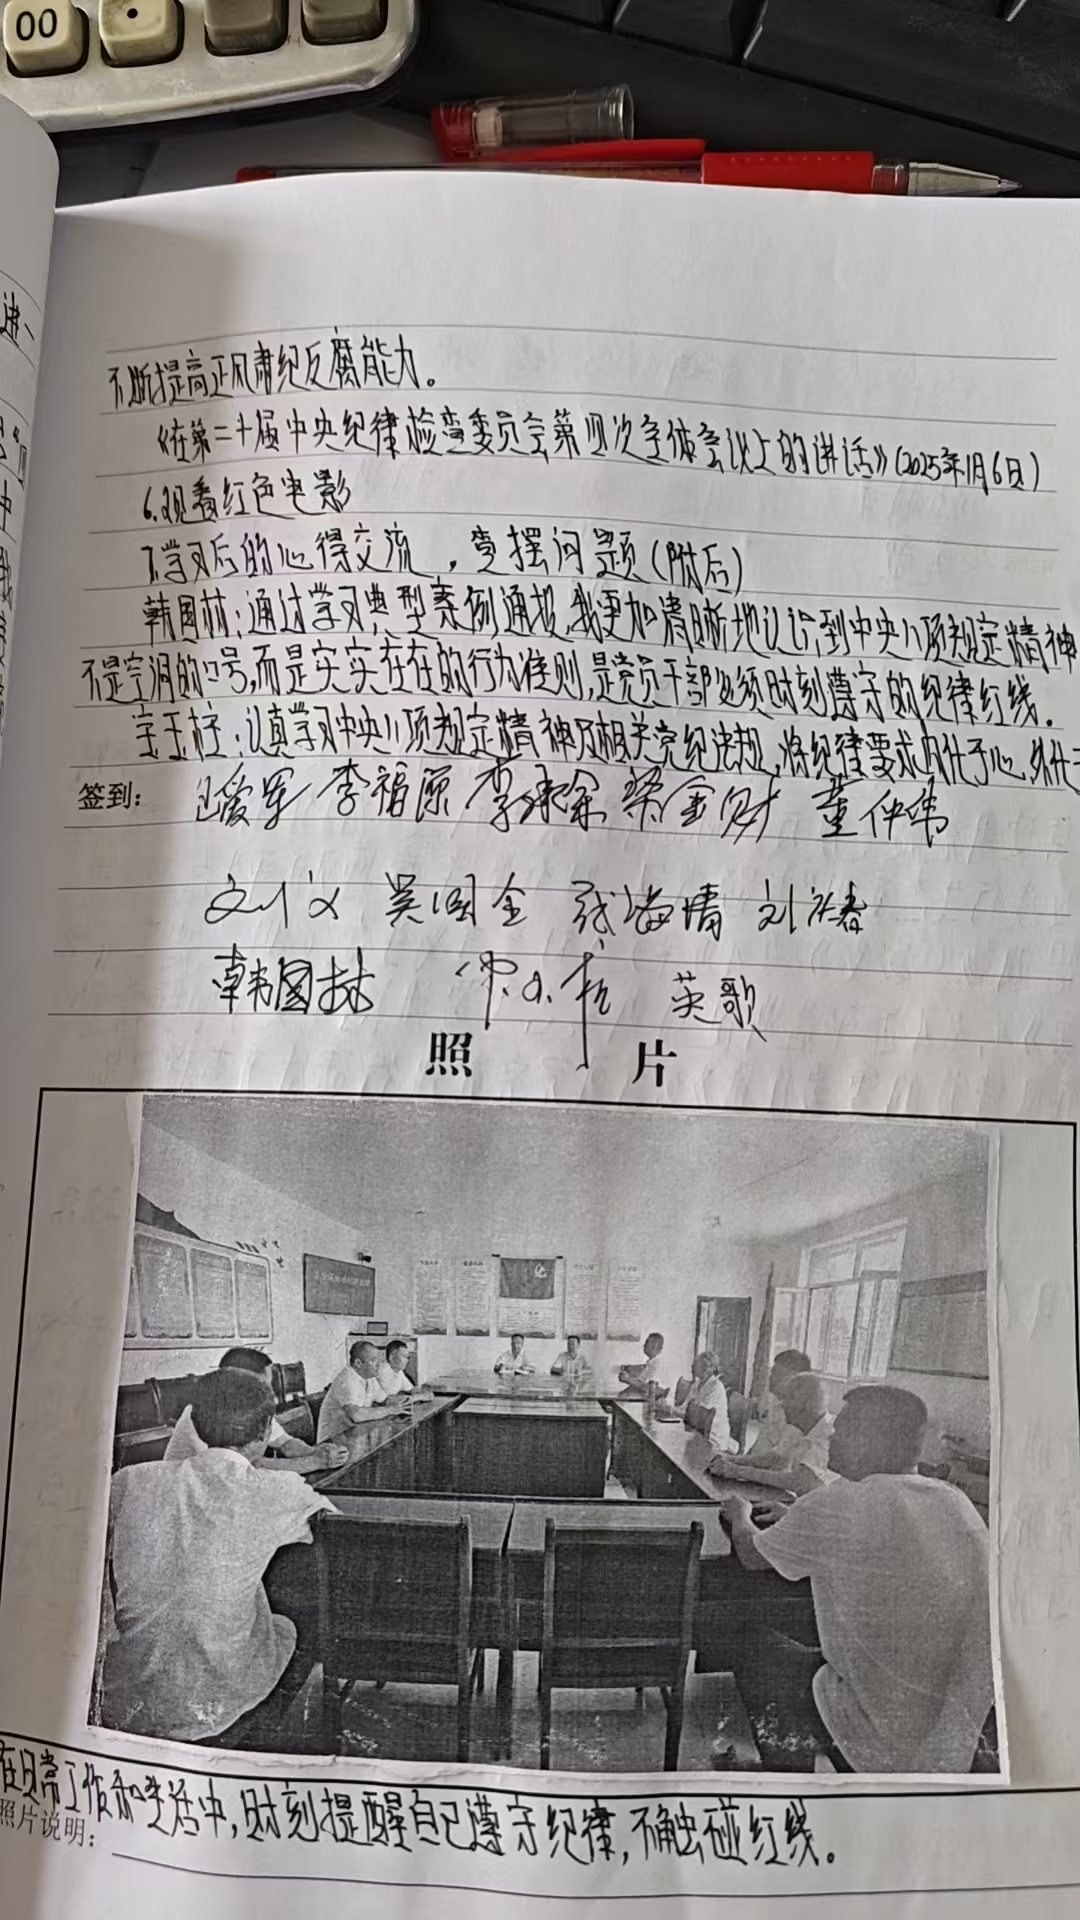 00
进、
中
不断提高正风肃纪反腐能力。
《在第二十届中央纪律检查委员会第四次全体会议上的讲话》(2025年1月6日)
6.观看红色电影
7.学习后的心得交流，查摆问题(附后)
韩国林：通过学习典型案例通报，我更加清晰地认识到中央八项规定精神
不是空洞的口号，而是实实在在的行为准则，是党员干部必须时刻遵守的纪律红线。
宝玉柱：认真学习中央八项规定精神及相关党纪法规，将纪律要求内化于心，外化于
签到： 李福原 梁金财 董仲伟
刘义 吴国全 张海清 刘庆春
韩国林 英歌
照 片
在日常工作和生活中，时刻提醒自己遵守纪律，不触碰红线。
照片说明：